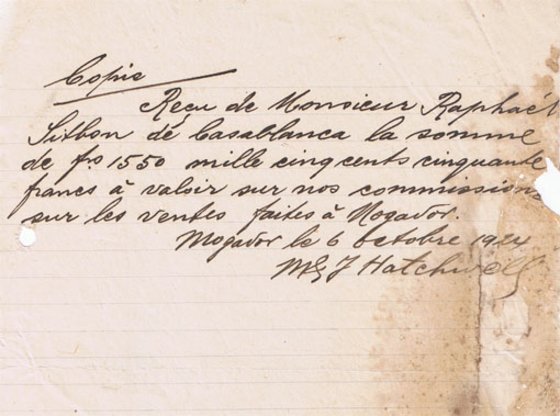 Copie
Reçu de Monsieur Raphael
Sitbon de Casablanca la somme
de frs 1550 mille cinq cents cinquante
francs à valoir sur nos commissions
sur les ventes faites à Mogador.
Mogador le 6 octobre 1924
M & J Hatchwell